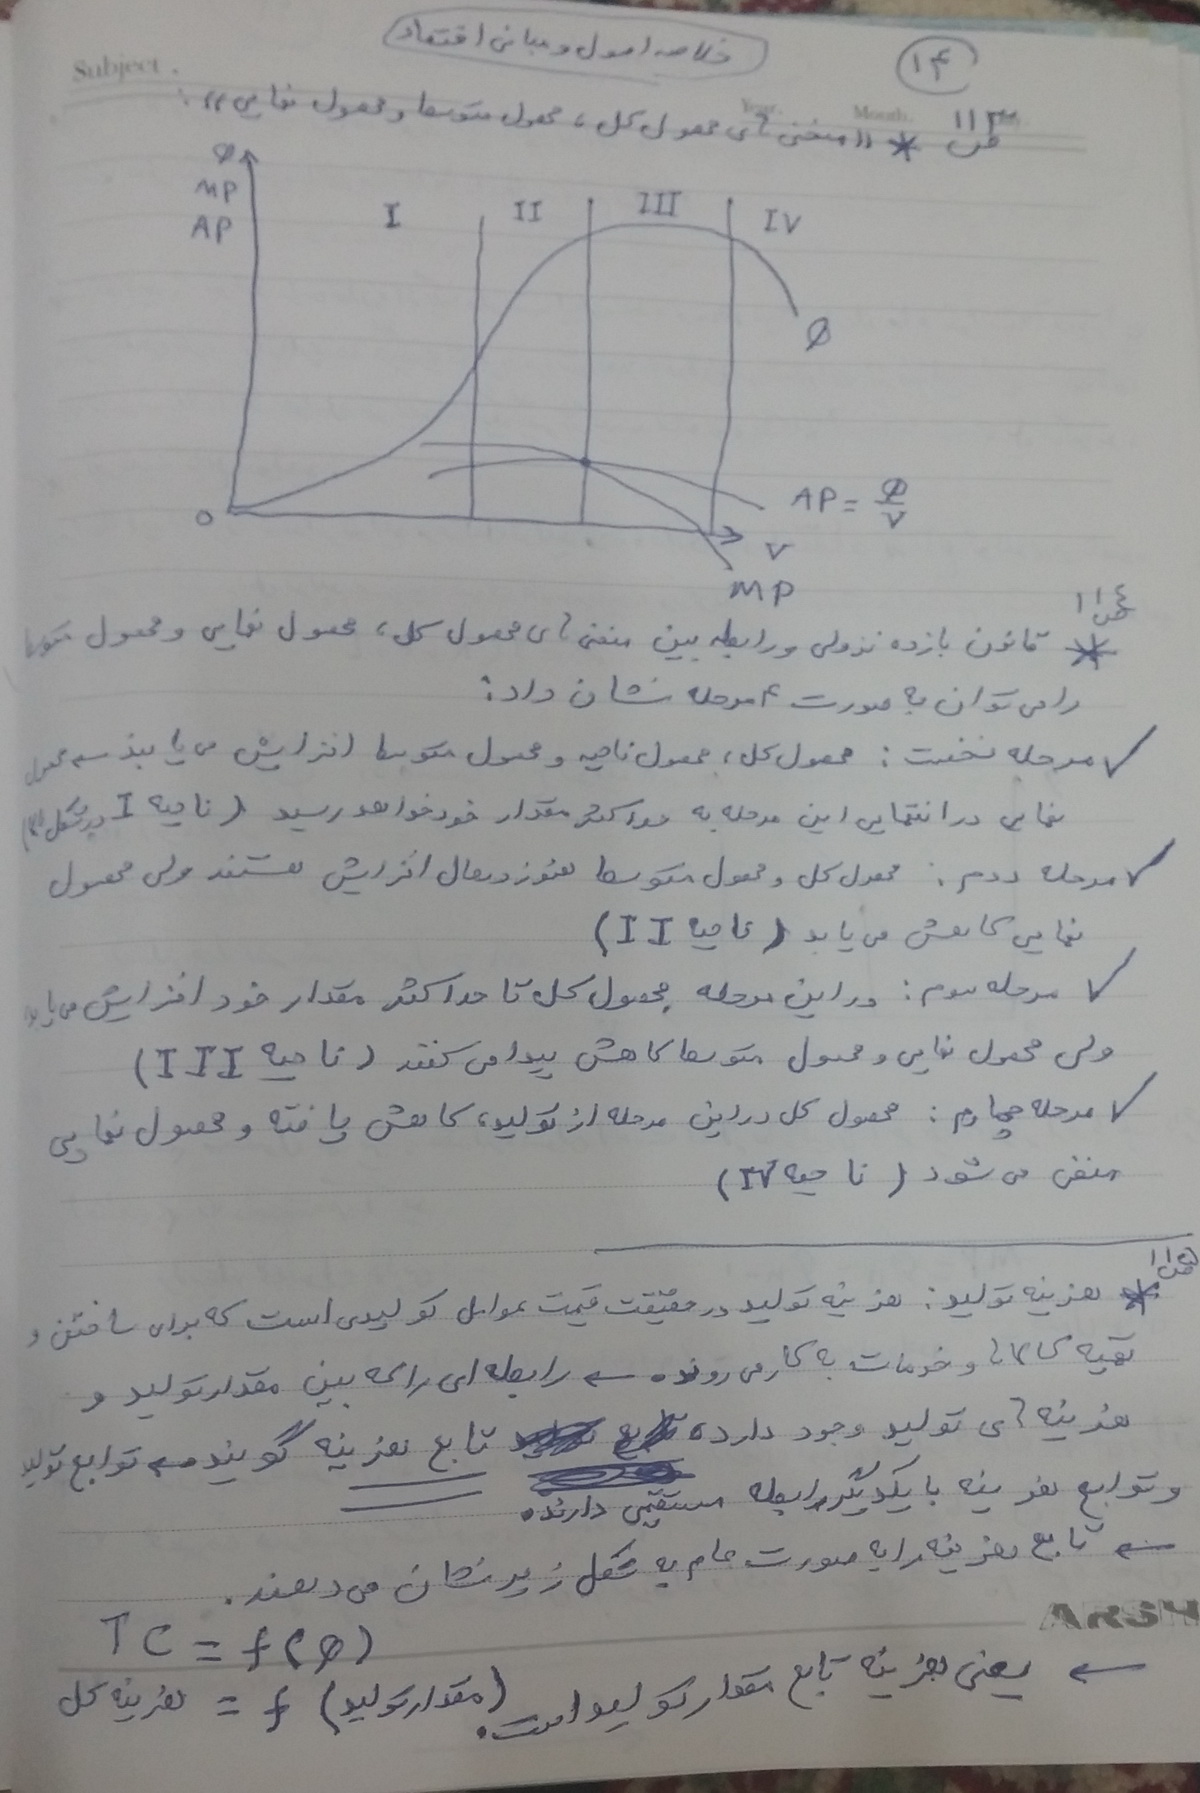 خلاصه اصول و مبانی اقتصاد
۱۴
Subject.
Year. Month.
ص ۱۱۳
* «منحنی های محصول کل، محصول متوسط و محصول نهایی»:
Q
MP
AP
I II III IV
Q
AP = Q/V
O
V
MP
ص ۱۱۴
* قانون بازده نزولی و رابطه بین منحنی های محصول کل، محصول نهایی و محصول متوسط
را می توان به صورت ۴ مرحله نشان داد:
✓ مرحله نخست: محصول کل، محصول ناحیه و محصول متوسط افزایش می یابند ← محصول
نهایی در انتهایی این مرحله به حداکثر مقدار خود خواهد رسید (ناحیه I در شکل)
✓ مرحله دوم: محصول کل و محصول متوسط هنوز در حال افزایش هستند ولی محصول
نهایی کاهش می یابد (ناحیه II)
✓ مرحله سوم: در این مرحله محصول کل تا حداکثر مقدار خود افزایش می یابد
ولی محصول نهایی و محصول متوسط کاهش پیدا می کنند (ناحیه III)
✓ مرحله چهارم: محصول کل در این مرحله از تولید، کاهش یافته و محصول نهایی
منفی می شود (ناحیه IV)
ص ۱۱۵
* هزینه تولید: هزینه تولید در حقیقت قیمت عوامل تولیدی است که برای ساختن و
تهیه کالاها و خدمات به کار می روند. ← رابطه ای را که بین مقدار تولید و
هزینه های تولید وجود دارد، تابع هزینه گویند ← توابع تولید
و توابع هزینه با یکدیگر رابطه مستقیمی دارند.
← تابع هزینه را به صورت عام به شکل زیر نشان می دهند.
ARSH
TC = f(Q)
← یعنی هزینه تابع مقدار تولید است.
هزینه کل = f (مقدار تولید)